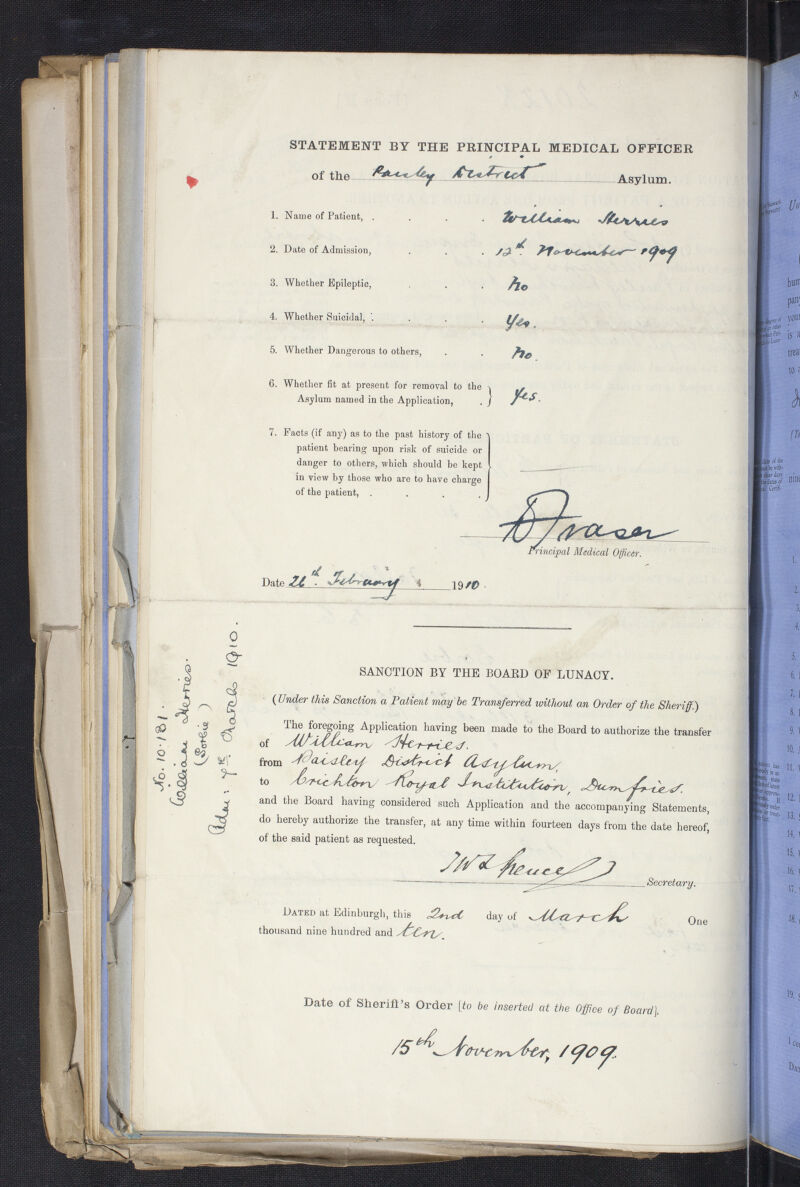 STATEMENT BY THE PRINCIPAL MEDICAL OFFICER
of the Paisley District Asylum.
1. Name of Patient, . . . . William Herries
2. Date of Admission, . . . 12th. November 1909
3. Whether Epileptic, . . . No
4. Whether Suicidal, . . . . Yes.
5. Whether Dangerous to others, . . No.
6. Whether fit at present for removal to the
Asylum named in the Application, . } Yes.
7. Facts (if any) as to the past history of the
patient bearing upon risk of suicide or
danger to others, which should be kept
in view by those who are to have charge
of the patient, . . . .
D Fraser
Principal Medical Officer.
Date 26th. February 1910.
SANCTION BY THE BOARD OF LUNACY.
(Under this Sanction a Patient may be Transferred without an Order of the Sheriff.)
The foregoing Application having been made to the Board to authorize the transfer
of William Herries.
from Paisley District Asylum,
to Crichton Royal Institution, Dumfries.
and the Board having considered such Application and the accompanying Statements,
do hereby authorize the transfer, at any time within fourteen days from the date hereof,
of the said patient as requested.
Secretary.
DATED at Edinburgh, this 2nd day of March One
thousand nine hundred and ten.
Date of Sheriff's Order [to be inserted at the Office of Board].
15th November, 1909.
No. 10,181.
William Herries.
(Sorbie)
Adm: 7th. March 1910.